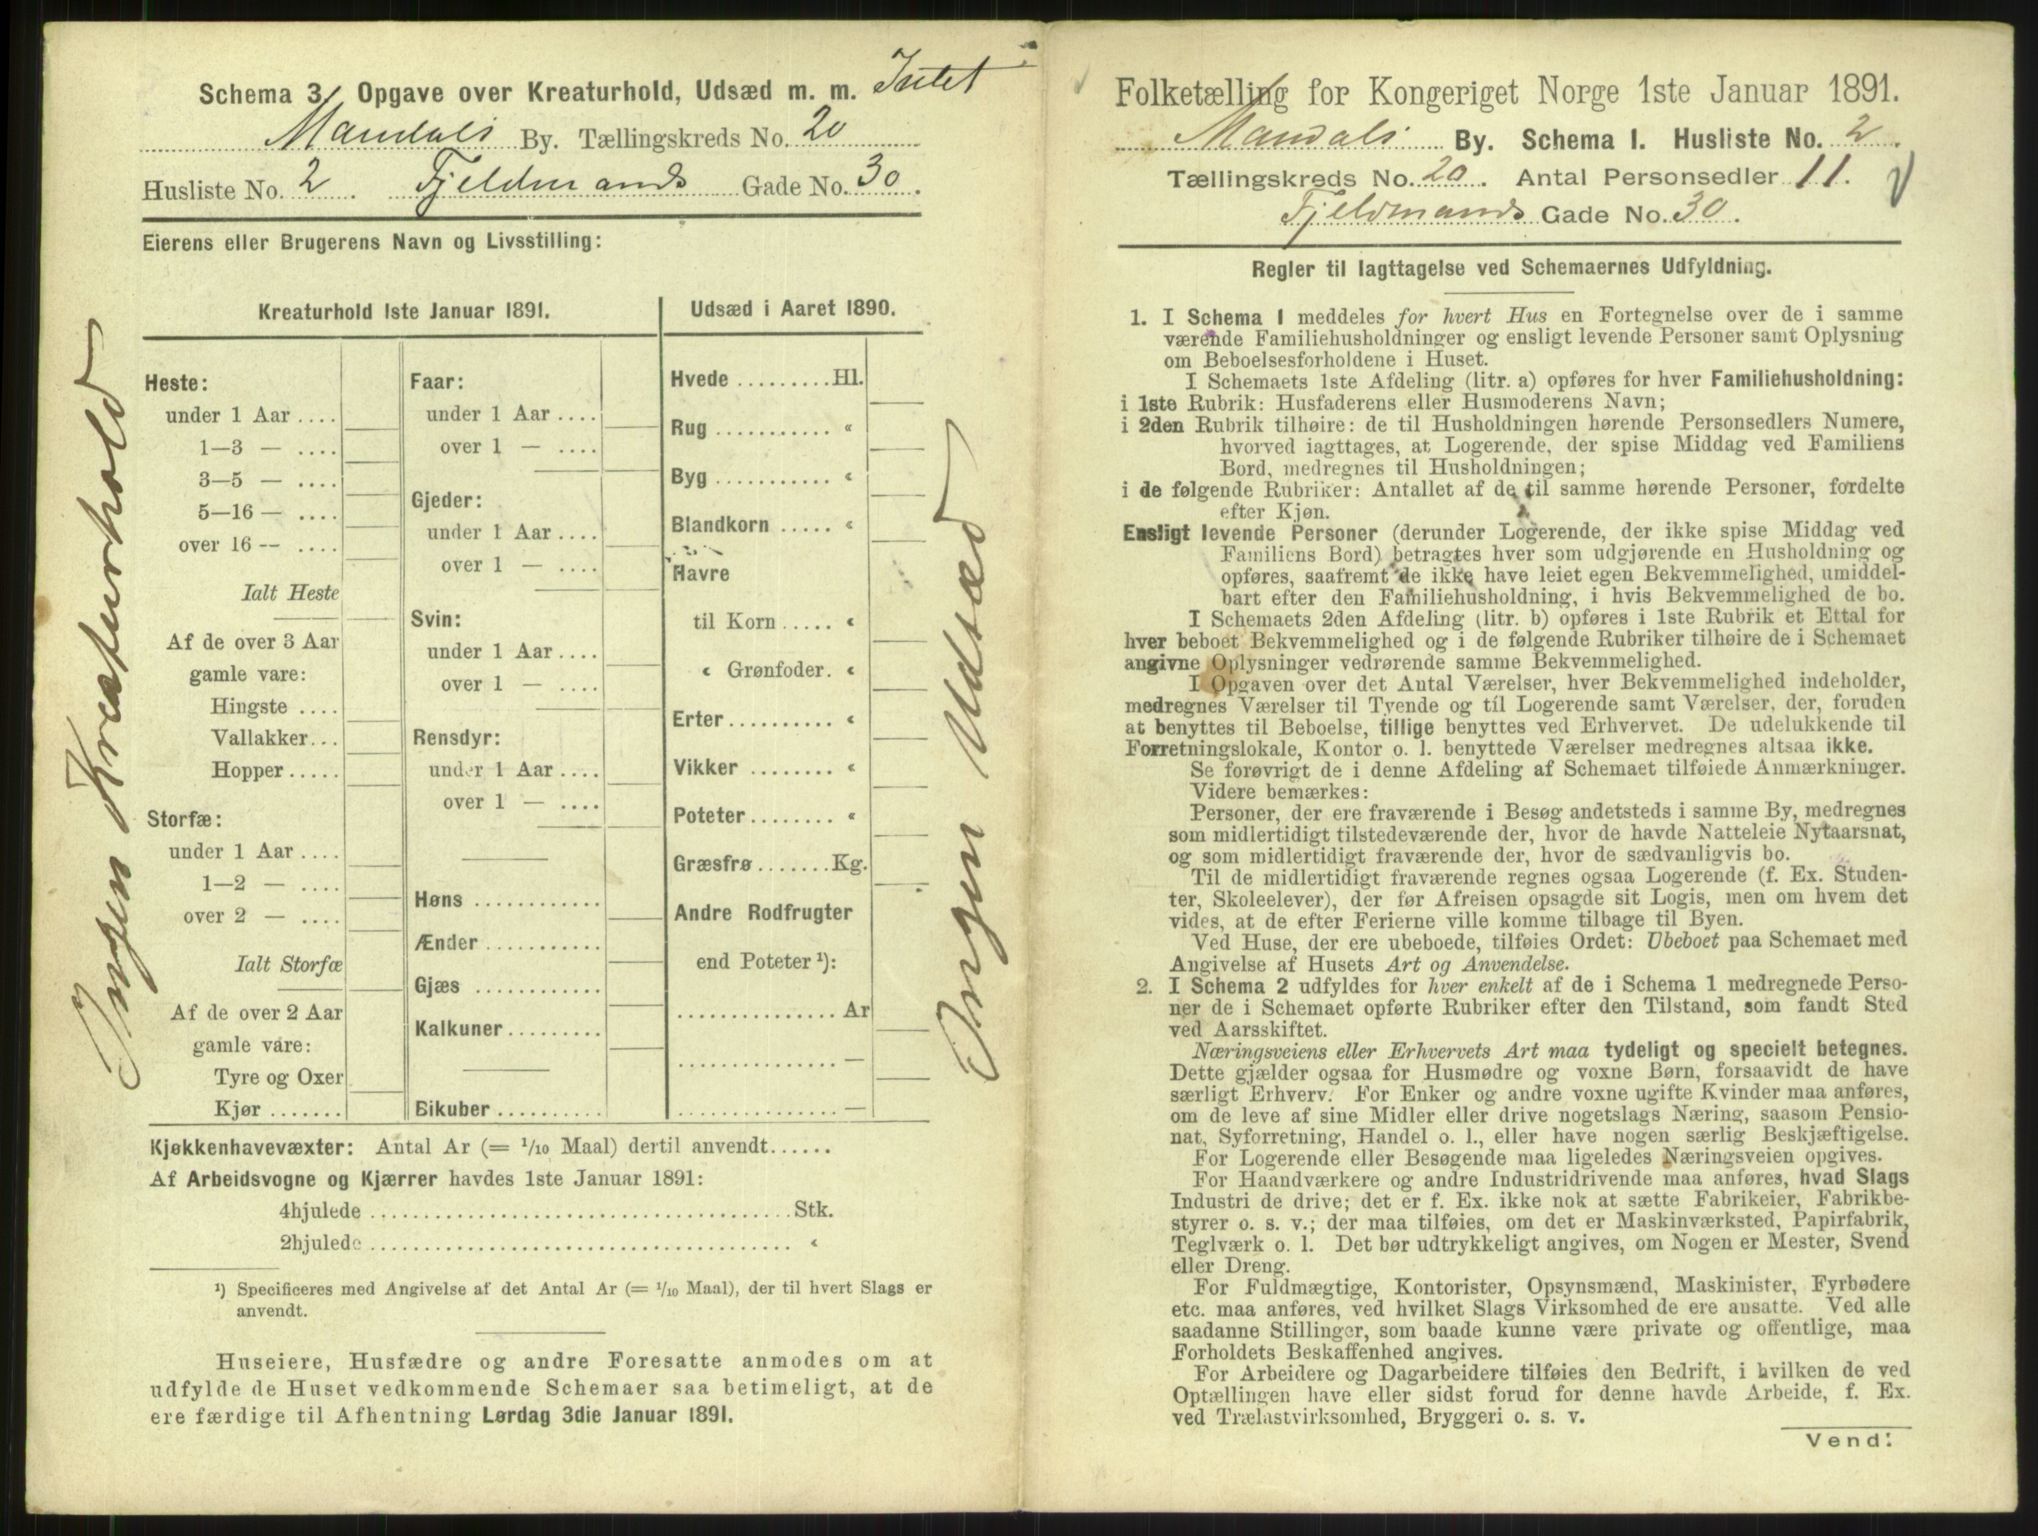 Schema 3. Opgave over Kreaturhold, Udsæd m. m. Intet
Mandals By. Tællingskreds No. 20
Husliste No. 2. Fjeldmands Gade No. 30.
Eierens eller Brugerens Navn og Livsstilling:
Kreaturhold 1ste Januar 1891.
Heste:
under 1 Aar ....
1—3 — ....
3—5 — ....
5—16 — ....
over 16 -- ....
Ialt Heste
Af de over 3 Aar
gamle vare:
Hingste ....
Vallakker...
Hopper.....
Storfæ:
under 1 Aar ....
1—2 — ....
over 2 — ....
Ialt Storfæ
Af de over 2 Aar
gamle vare:
Tyre og Oxer
Kjør .......
Faar:
under 1 Aar ....
over 1 — ....
Gjeder:
under 1 Aar ....
over 1 — ....
Svin:
under 1 Aar ....
over 1 — ....
Rensdyr:
under 1 Aar ....
over 1 — ....
Høns ............
Ænder ...........
Gjæs ............
Kalkuner.........
Bikuber ..........
Ingen Kreaturhold
Udsæd i Aaret 1890.
Hvede .........Hl.
Rug ........... “
Byg ........... “
Blandkorn ..... “
Havre
til Korn ..... “
“ Grønfoder. “
Erter.......... “
Vikker ........ “
Poteter........ “
Græsfrø .......Kg.
Andre Rodfrugter
end Poteter ¹):
............... Ar
............... —
............... —
Ingen Udsæd
Kjøkkenhavevæxter: Antal Ar (= 1/10 Maal) dertil anvendt......
Af Arbeidsvogne og Kjærrer havdes 1ste Januar 1891:
4hjulede ........................................ Stk.
2hjulede ........................................ “
¹) Specificeres med Angivelse af det Antal Ar (= 1/10 Maal), der til hvert Slags er
anvendt.
Huseiere, Husfædre og andre Foresatte anmodes om at
udfylde de Huset vedkommende Schemaer saa betimeligt, at de
ere færdige til Afhentning Lørdag 3die Januar 1891.
Folketælling for Kongeriget Norge 1ste Januar 1891.
Mandals By. Schema I. Husliste No. 2.
Tællingskreds No. 20. Antal Personsedler 11.
Fjeldmands Gade No. 30.
Regler til Iagttagelse ved Schemaernes Udfyldning.
1. I Schema 1 meddeles for hvert Hus en Fortegnelse over de i samme
værende Familiehusholdninger og ensligt levende Personer samt Oplysning
om Beboelsesforholdene i Huset.
I Schemaets 1ste Afdeling (litr. a) opføres for hver Familiehusholdning:
i 1ste Rubrik: Husfaderens eller Husmoderens Navn;
i 2den Rubrik tilhøire: de til Husholdningen hørende Personsedlers Numere,
hvorved iagttages, at Logerende, der spise Middag ved Familiens
Bord, medregnes til Husholdningen;
i de følgende Rubriker: Antallet af de til samme hørende Personer, fordelte
efter Kjøn.
Ensligt levende Personer (derunder Logerende, der ikke spise Middag ved
Familiens Bord) betragtes hver som udgjørende en Husholdning og
opføres, saafremt de ikke have leiet egen Bekvemmelighed, umiddel-
bart efter den Familiehusholdning, i hvis Bekvemmelighed de bo.
I Schemaets 2den Afdeling (litr. b) opføres i 1ste Rubrik et Ettal for
hver beboet Bekvemmelighed og i de følgende Rubriker tilhøire de i Schemaet
angivne Oplysninger vedrørende samme Bekvemmelighed.
I Opgaven over det Antal Værelser, hver Bekvemmelighed indeholder,
medregnes Værelser til Tyende og til Logerende samt Værelser, der, foruden
at benyttes til Beboelse, tillige benyttes ved Erhvervet. De udelukkende til
Forretningslokale, Kontor o. l. benyttede Værelser medregnes altsaa ikke.
Se forøvrigt de i denne Afdeling af Schemaet tilføiede Anmærkninger.
Videre bemærkes:
Personer, der ere fraværende i Besøg andetsteds i samme By, medregnes
som midlertidigt tilstedeværende der, hvor de havde Natteleie Nytaarsnat,
og som midlertidigt fraværende der, hvor de sædvanligvis bo.
Til de midlertidigt fraværende regnes ogsaa Logerende (f. Ex. Studen-
ter, Skoleelever), der før Afreisen opsagde sit Logis, men om hvem det
vides, at de efter Ferierne ville komme tilbage til Byen.
Ved Huse, der ere ubeboede, tilføies Ordet: Ubeboet paa Schemaet med
Angivelse af Husets Art og Anvendelse.
2. I Schema 2 udfyldes for hver enkelt af de i Schema 1 medregnede Perso-
ner de i Schemaet opførte Rubriker efter den Tilstand, som fandt Sted
ved Aarsskiftet.
Næringsveiens eller Erhvervets Art maa tydeligt og specielt betegnes.
Dette gjælder ogsaa for Husmødre og voxne Børn, forsaavidt de have
særligt Erhverv. For Enker og andre voxne ugifte Kvinder maa anføres,
om de leve af sine Midler eller drive nogetslags Næring, saasom Pensio-
nat, Syforretning, Handel o. l., eller have nogen særlig Beskjæftigelse.
For Logerende eller Besøgende maa ligeledes Næringsveien opgives.
For Haandværkere og andre Industridrivende maa anføres, hvad Slags
Industri de drive; det er f. Ex. ikke nok at sætte Fabrikeier, Fabrikbe-
styrer o. s. v.; der maa tilføies, om det er Maskinværksted, Papirfabrik,
Teglværk o. l. Det bør udtrykkeligt angives, om Nogen er Mester, Svend
eller Dreng.
For Fuldmægtige, Kontorister, Opsynsmænd, Maskinister, Fyrbødere
etc. maa anføres, ved hvilket Slags Virksomhed de ere ansatte. Ved alle
saadanne Stillinger, som baade kunne være private og offentlige, maa
Forholdets Beskaffenhed angives.
For Arbeidere og Dagarbeidere tilføies den Bedrift, i hvilken de ved
Optællingen have eller sidst forud for denne havde Arbeide, f. Ex.
ved Trælastvirksomhed, Bryggeri o. s. v.
Vend: